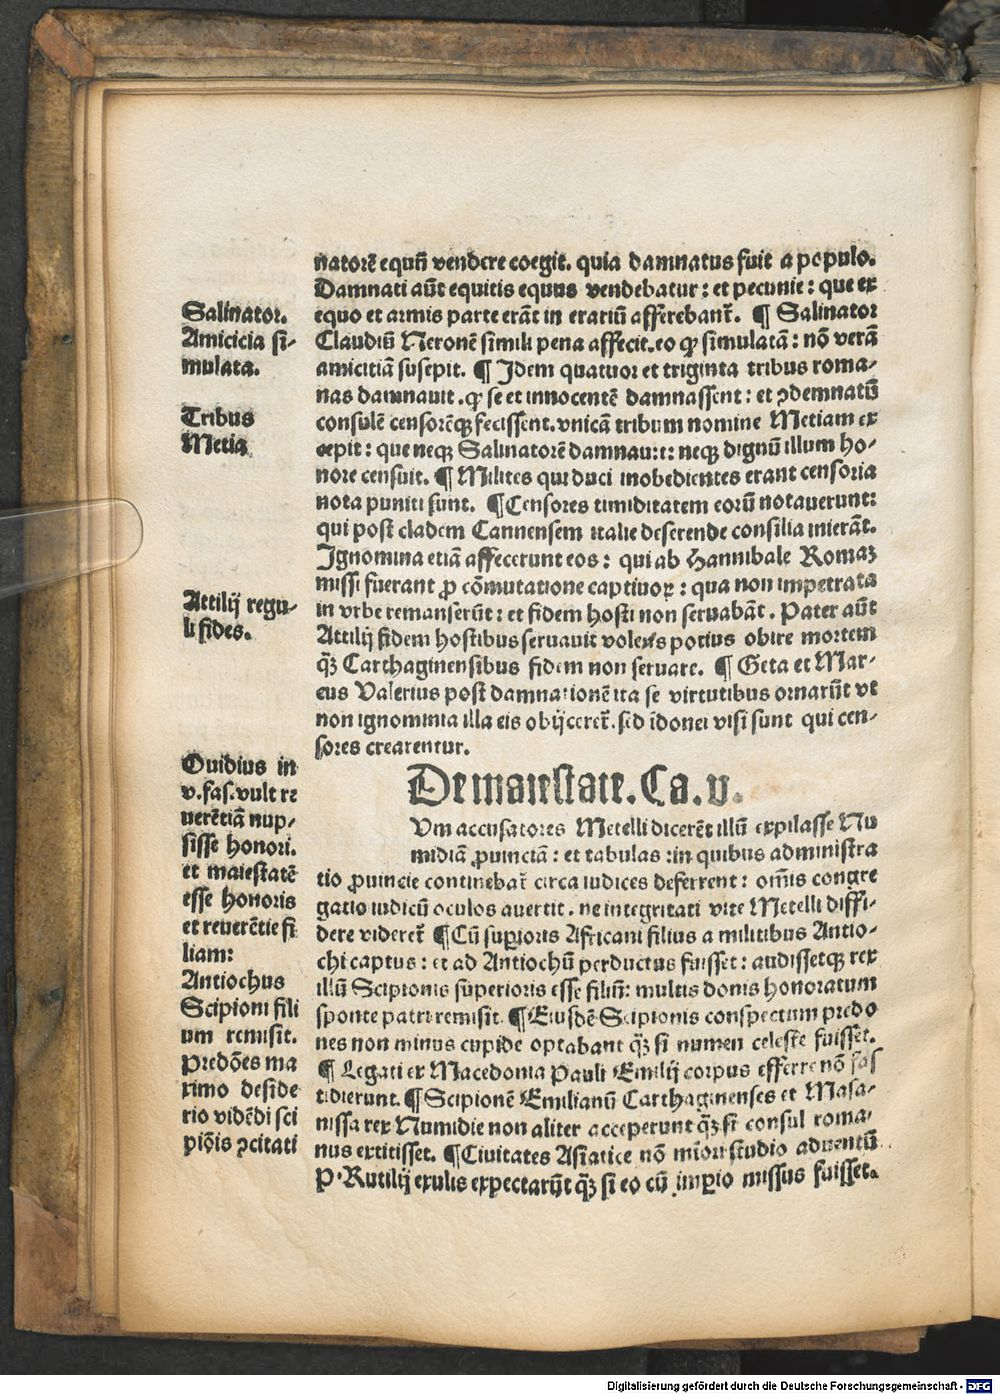 natorē equū vendere coegit. quia damnatus fuit a populo.
Damnati aūt equitis equus vendebatur: et pecunie: que ex
equo et armis parte erāt in erariū afferebant̄. ¶ Salinator
Claudiū Neronē simili pena affecit. eo ꝙ simulatā: nō verā
amicitiā susepit. ¶ Idem quatuor et triginta tribus roma-
nas damnauit. ꝙ se et innocentē damnassent: et ꝯdemnatū
consulē censorēqꝫ fecissent. vnicā tribum nomine Metiam ex
cepit: que neqꝫ Salinatorē damnauit: neqꝫ dignū illum ho-
nore censuit. ¶ Milites qui duci inobedientes erant censoria
nota puniti sunt. ¶ Censores timiditatem eorū notauerunt:
qui post cladem Cannensem italie deserende consilia inierāt.
Ignomina etiā affecerunt eos: qui ab Hannibale Romaꝫ
missi fuerant ꝓ cōmutatione captiuoꝝ: qua non impetrata
in vrbe remanserūt: et fidem hosti non seruabāt. Pater aūt
Attilij fidem hostibus seruauit volens potius obire mortem
q̄ꝫ Carthaginensibus fidem non seruare. ¶ Geta et Mar-
cus Valerius post damnationē ita se virtutibus ornarūt vt
non ignominia illa eis obijceret̄. sed idonei visi sunt qui cen-
sores crearentur.
De maiestate. Ca. v.
Vm accusatores Metelli dicerēt illū expilasse Nu
midiā ꝓuinciā: et tabulas: in quibus administra
tio ꝓuincie continebat̄ circa iudices deferrent: om̄is congre
gatio iudicū oculos auertit. ne integritati vite Metelli diffi-
dere videret̄ ¶ Cū suꝑioris Africani filius a militibus Antio-
chi captus: et ad Antiochū perductus fuisset: audissetqꝫ rex
illū Scipionis superioris esse filiū: multis donis honoratum
sponte patri remisit. ¶ Eiusdē Scipionis conspectum predo
nes non minus cupide optabant q̄ꝫ si numen celeste fuisset.
¶ Legati ex Macedonia Pauli Emilij corpus efferre nō fas
tidierunt. ¶ Scipionē Emilianū Carthaginenses et Masa-
nissa rex Numidie non aliter acceperunt q̄ꝫ si consul roma-
nus extitisset. ¶ Ciuitates Asiatice nō miori studio aduentū
P. Rutilij exulis expectarūt q̄ꝫ si eo cū imꝑio missus fuisset.
Salinator.
Amicicia si-
mulata.
Tribus
Metia
Attilij regu-
li fides.
Ouidius in
v. fas. vult re
uerētiā nup-
sisse honori.
et maiestatē
esse honoris
et reuerētie fi
liam:
Antiochus
Scipioni fili
um remisit.
Predōes ma
ximo deside
rio vidēdi sci
piōis ꝯcitati
Digitalisierung gefördert durch die Deutsche Forschungsgemeinschaft - DFG